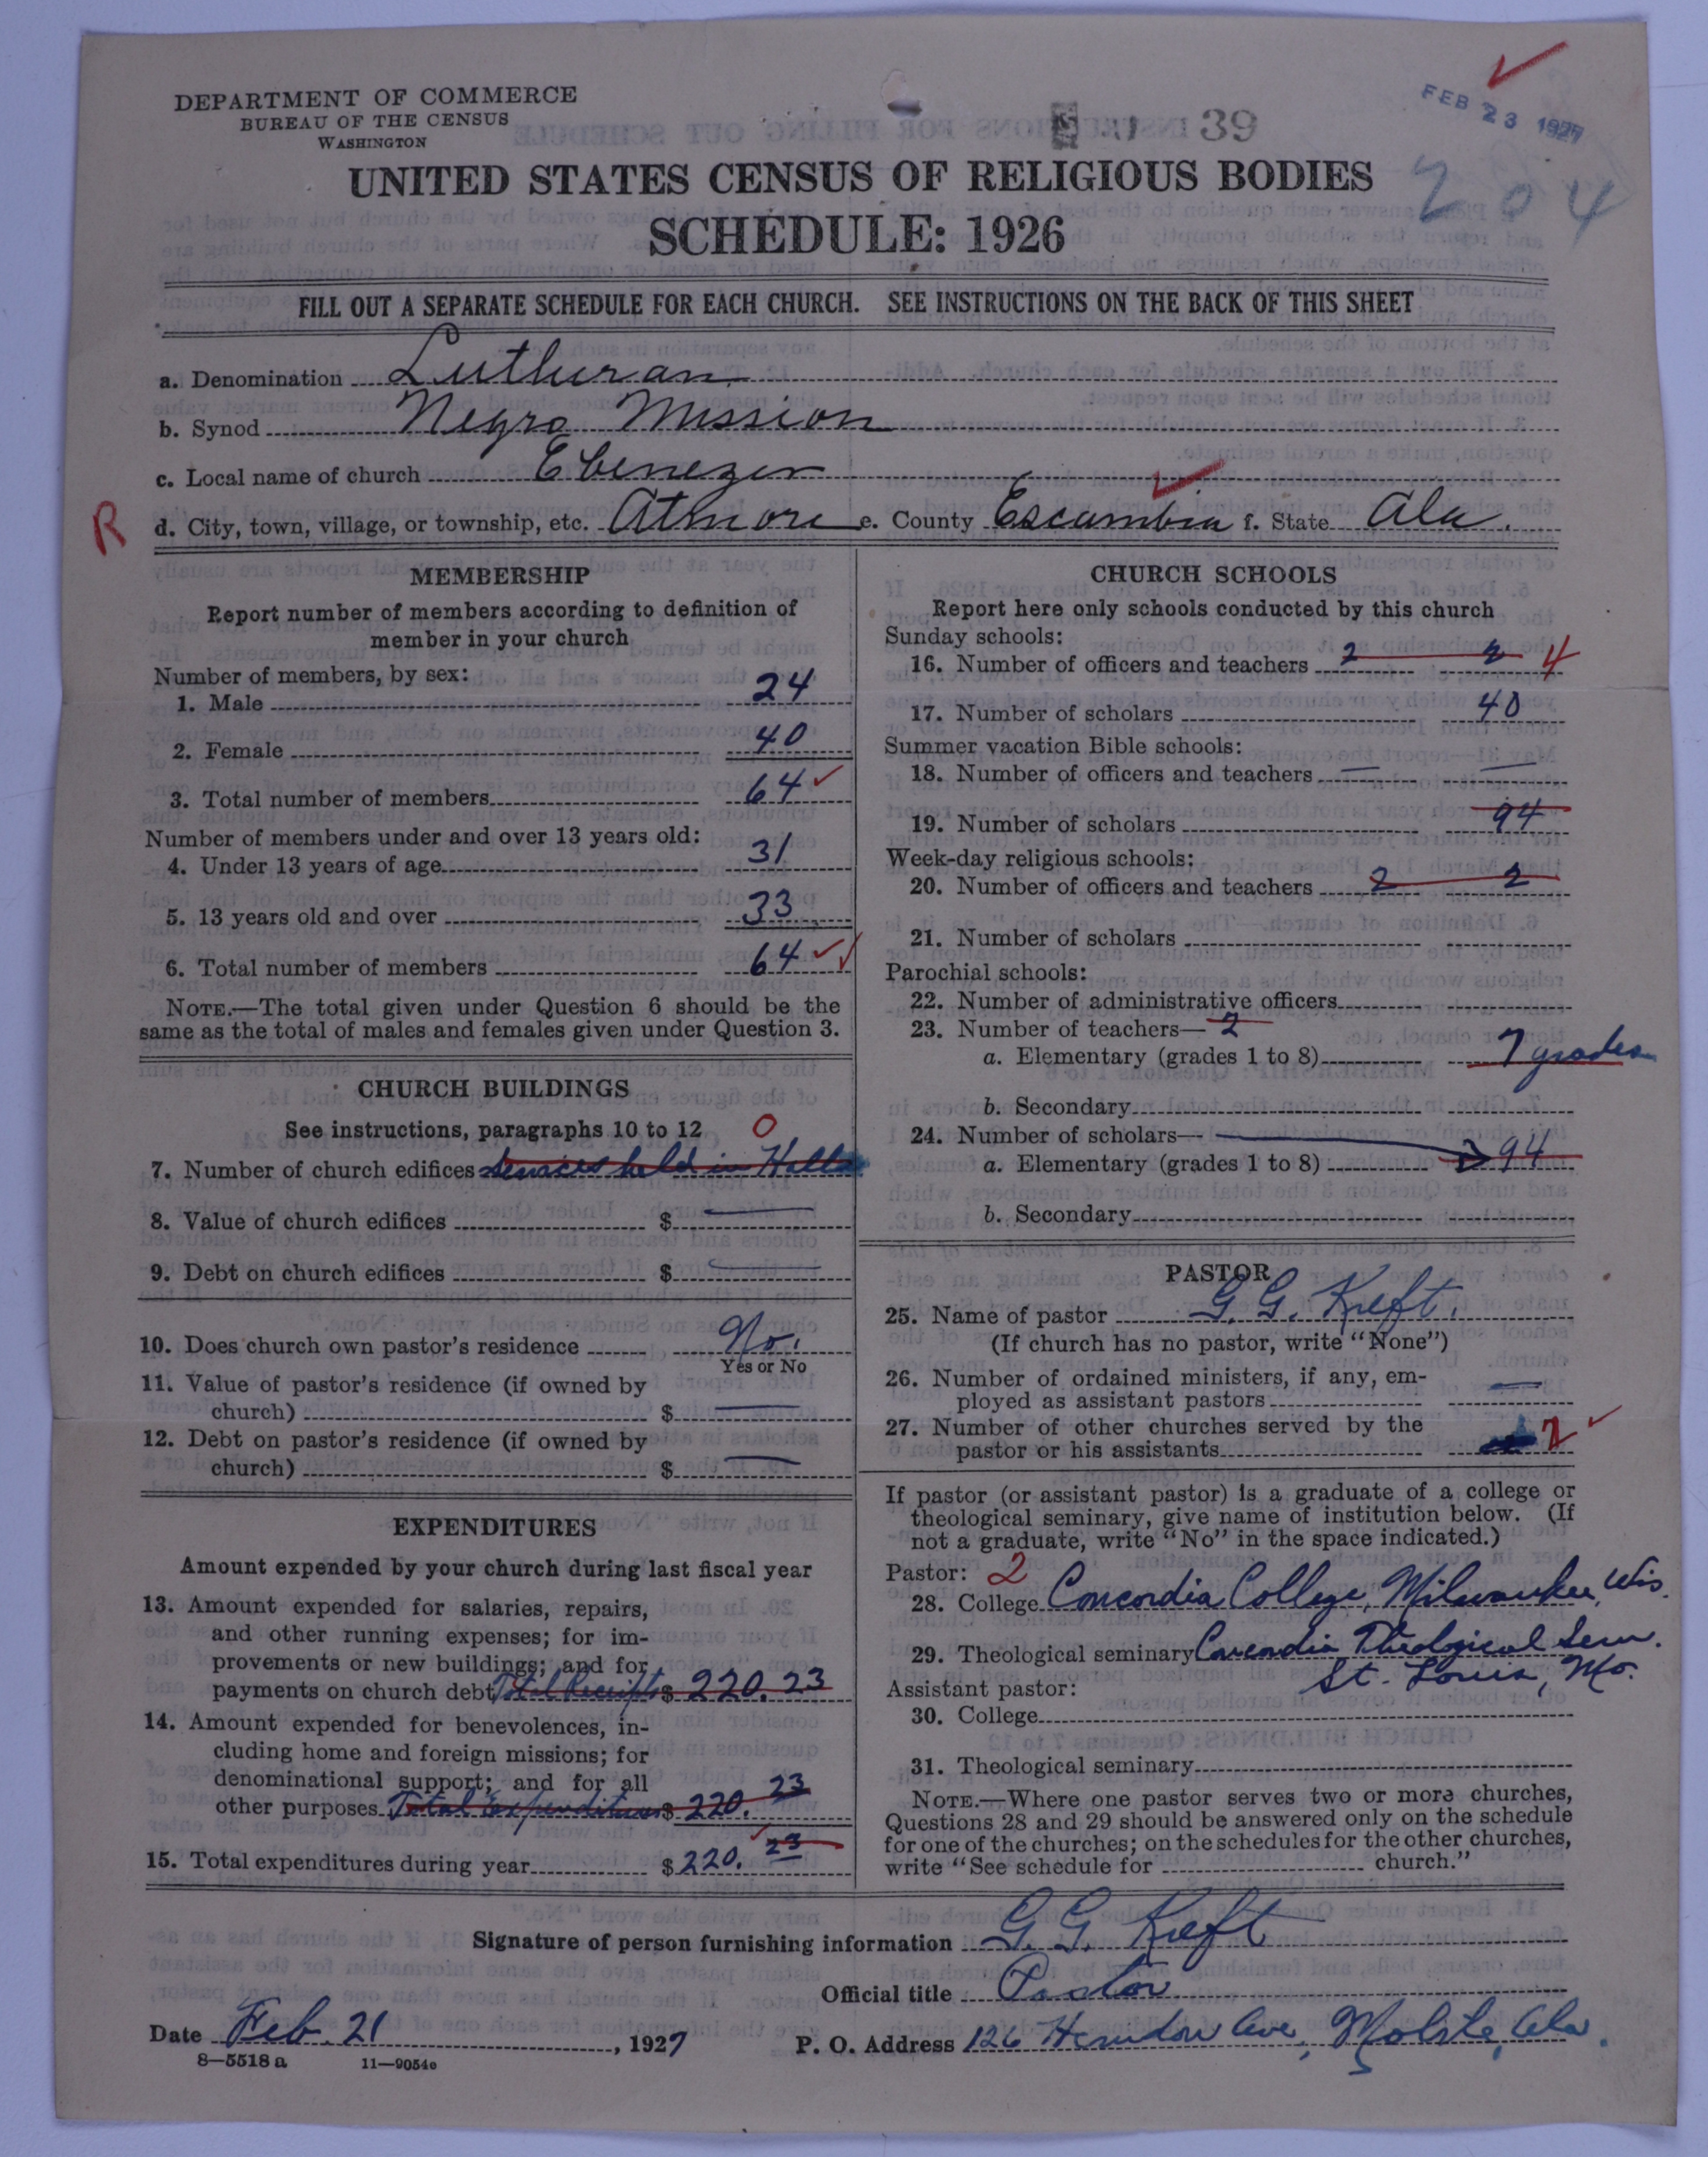 DEPARTMENT OF COMMERCE
BUREAU OF THE CENSUS
WASHINGTON
39
FEB 23 1927
204
UNITED STATES CENSUS OF RELIGIOUS BODIES
SCHEDULE: 1926
FILL OUT A SEPARATE SCHEDULE FOR EACH CHURCH. SEE INSTRUCTIONS ON THE BACK OF THIS SHEET
a. Denomination Lutheran
b. Synod Negro Mission
c. Local name of church Ebenezer
R d. City, town, village, or township, etc. Atmore e. County Escambia f. State Ala.
MEMBERSHIP
Report number of members according to definition of
member in your church
Number of members, by sex:
1. Male 24
2. Female 40
3. Total number of members 64
Number of members under and over 13 years old:
4. Under 13 years of age 31
5. 13 years old and over 33
6. Total number of members 64
NOTE.—The total given under Question 6 should be the
same as the total of males and females given under Question 3.
CHURCH BUILDINGS
See instructions, paragraphs 10 to 12 0
7. Number of church edifices Services held in Halls
8. Value of church edifices $ —
9. Debt on church edifices $ —
10. Does church own pastor's residence No.
Yes or No
11. Value of pastor's residence (if owned by
church) $ —
12. Debt on pastor's residence (if owned by
church) $ —
EXPENDITURES
Amount expended by your church during last fiscal year
13. Amount expended for salaries, repairs,
and other running expenses; for im-
provements or new buildings; and for
payments on church debt Total Receipts $ 220.23
14. Amount expended for benevolences, in-
cluding home and foreign missions; for
denominational support; and for all
other purposes Total Expenditures $ 220.23
15. Total expenditures during year $ 220.23
CHURCH SCHOOLS
Report here only schools conducted by this church
Sunday schools:
16. Number of officers and teachers 2 2 4
17. Number of scholars 40
Summer vacation Bible schools:
18. Number of officers and teachers — —
19. Number of scholars 94
Week-day religious schools:
20. Number of officers and teachers 2 2
21. Number of scholars
Parochial schools:
22. Number of administrative officers
23. Number of teachers— 2
a. Elementary (grades 1 to 8) 7 grades
b. Secondary
24. Number of scholars—
a. Elementary (grades 1 to 8) 94
b. Secondary
PASTOR
25. Name of pastor G. G. Kreft.
(If church has no pastor, write "None")
26. Number of ordained ministers, if any, em-
ployed as assistant pastors —
27. Number of other churches served by the
pastor or his assistants 2
If pastor (or assistant pastor) is a graduate of a college or
theological seminary, give name of institution below. (If
not a graduate, write "No" in the space indicated.)
Pastor: 2
28. College Concordia College, Milwaukee, Wis.
29. Theological seminary Concordia Theological Sem.
St. Louis, Mo.
Assistant pastor:
30. College
31. Theological seminary
NOTE.—Where one pastor serves two or more churches,
Questions 28 and 29 should be answered only on the schedule
for one of the churches; on the schedules for the other churches,
write "See schedule for church."
Signature of person furnishing information G. G. Kreft
Official title Pastor
Date Feb. 21, 1927 P. O. Address 126 Herndon Ave., Mobile, Ala.
8—5518 a 11—9054c